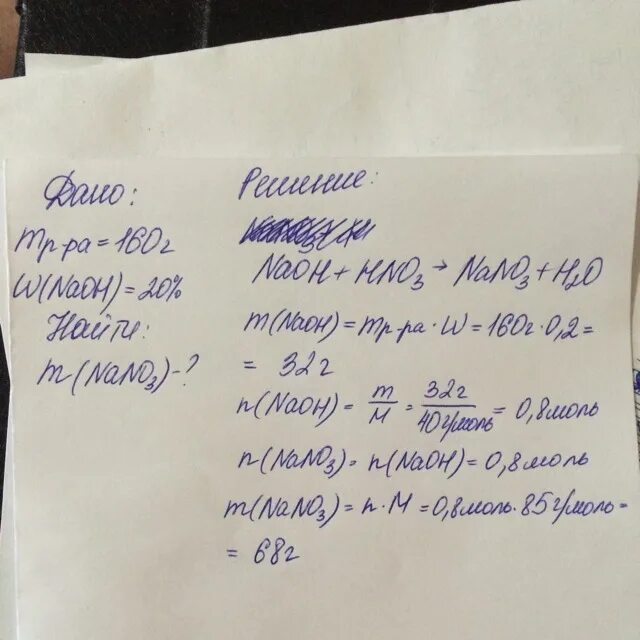 Дано:
mр-ра = 160г
W(NaOH) = 20%
Найти:
m(NaNO₃)-?
Решение:
NaOH + HNO₃ → NaNO₃ + H₂O
m(NaOH) = mр-ра · W = 160г · 0,2 =
= 32г
n(NaOH) = m/M = 32г/40г/моль = 0,8моль
n(NaNO₃) = n(NaOH) = 0,8моль
m(NaNO₃) = n · M = 0,8моль · 85г/моль =
= 68г